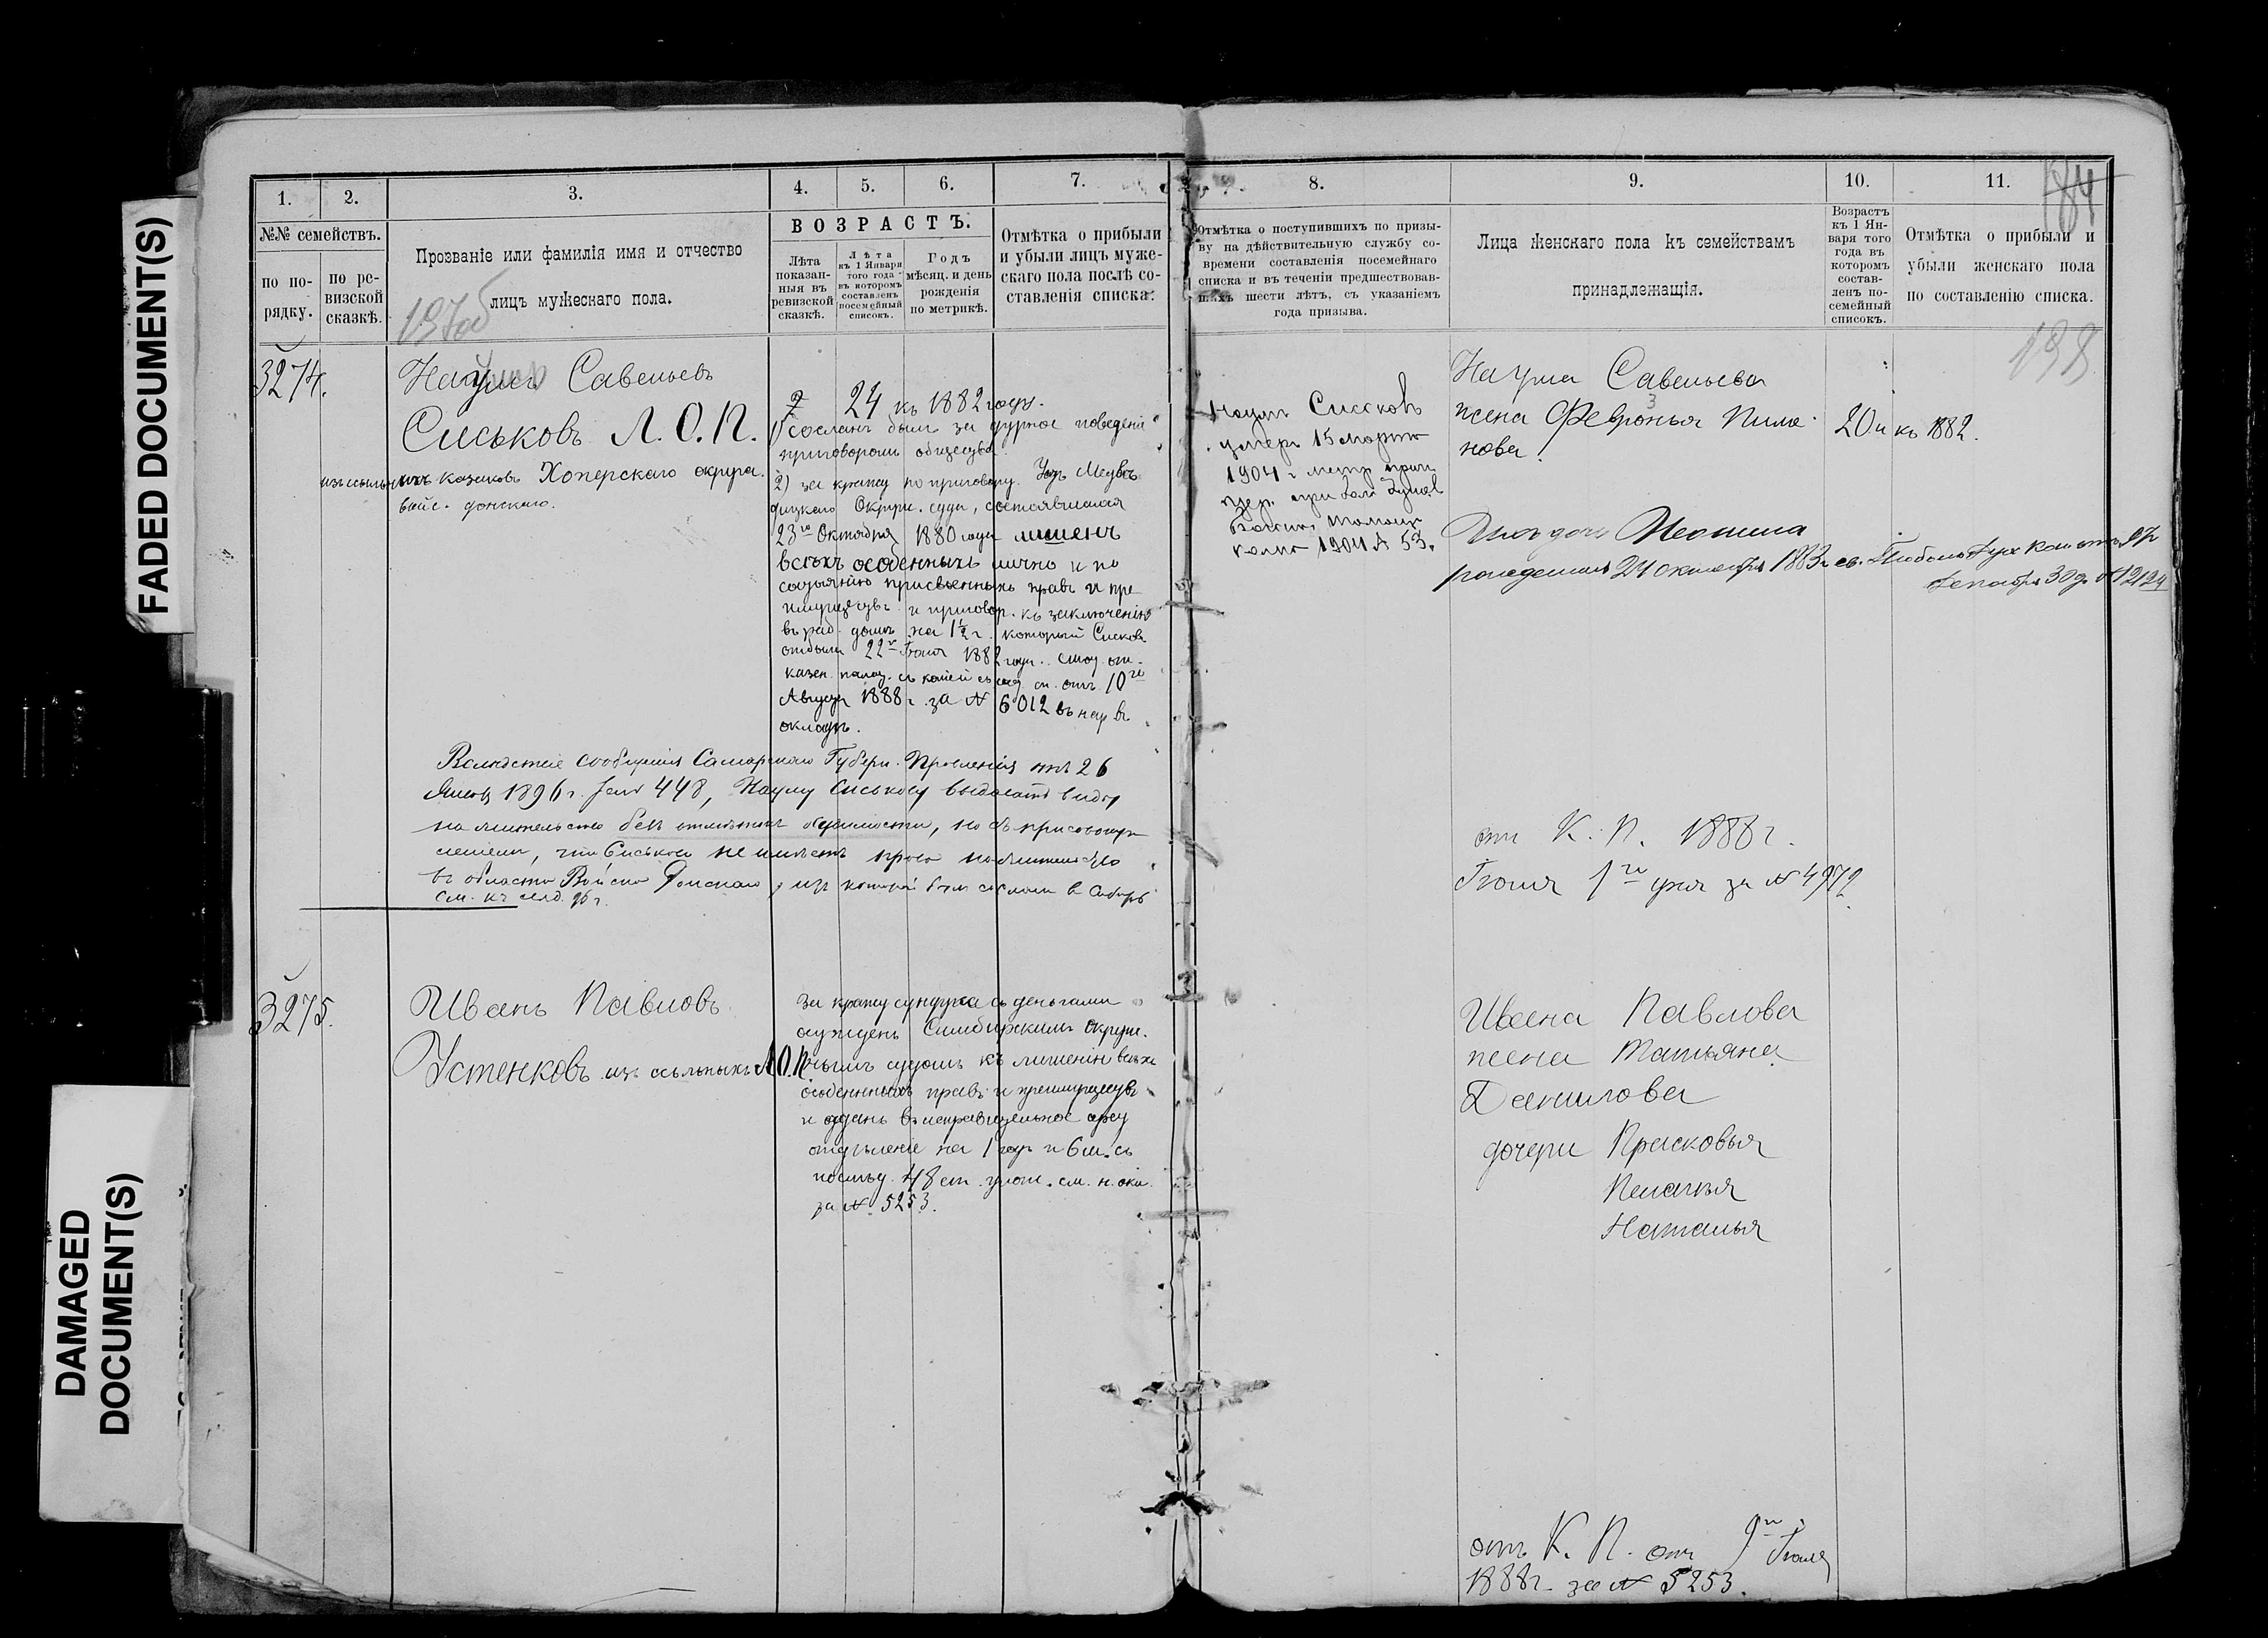 FADED DOCUMENT(S)
DAMAGED
DOCUMENT(S)
1.
2.
3.
4.
5.
6.
7.
№№ семействъ.
по по-
рядку.
по ре-
визской
сказкѣ.
Прозваніе или фамилія имя и отчество
лицъ мужескаго пола.
ВОЗРАСТЪ.
Лѣта
показан-
ныя въ
ревизской
сказкѣ.
Лѣта
къ 1 Января
того года
въ которомъ
составленъ
посемейный
списокъ.
Годъ
мѣсяц. и день
рожденія
по метрикѣ.
Отмѣтка о прибыли
и убыли лицъ муже-
скаго пола послѣ со-
ставленія списка.
3274.
Наумъ Савельевъ
Сиськовъ Л.О.П.
изъ ссыльныхъ казаковъ Хоперскаго округа.
войс. донскаго.
24 къ 1882 году.
1) сосланъ былъ за дурное поведеніе
приговоромъ общества
2) за кражу по приговору Усть Медвѣ
дицкаго Окруж. суда, состоявшемся
23го Октября 1880 года лишенъ
всѣхъ особенныхъ лично и по
состоянію присвоенныхъ правъ и пре
имуществъ и приговор. къ заключенію
въ раб. домъ на 1½ г. который Сисковъ
отбылъ 22го Іюля 1882 года.
казен. палат. съ копіей отъ 10го
Августа 1888 г. за № 6012 въ
окладъ.
Вслѣдствіе сообщенія Самарскаго Губерн. Правленія отъ 26
1896 г. за № 448, Науму Сиськову выдавать виды
на жительство безъ отмѣтки о судимости, но съ присовокуп
леніемъ, что Сиськовъ не имѣетъ права на жительство
въ области Войска Донскаго, изъ которой былъ сосланъ в Сибирь
3275.
Иванъ Павловъ
Устенковъ изъ ссыльныхъ Л.О.П.
За кражу сундука съ деньгами
осужденъ Симбирскимъ Окруж.
нымъ судомъ къ лишенію всѣхъ
особенныхъ правъ и преимуществъ
и отданъ въ исправительное арест
отдѣленіе на 1 годъ и 6 м. съ
послѣд. 48 ст. улож. см. н. окл.
за № 5253.
8.
9.
10.
11.
84
198
Отмѣтка о поступившихъ по призы-
ву на дѣйствительную службу со-
времени составленія посемейнаго
списка и въ теченіи предшествовав-
шихъ шести лѣтъ, съ указаніемъ
года призыва.
Лица женскаго пола къ семействамъ
принадлежащія.
Возрастъ
къ 1 Ян-
варя того
года въ
которомъ
состав-
ленъ по-
семейный
списокъ.
Отмѣтка о прибыли и
убыли женскаго пола
по составленію списка.
Наумъ Сисковъ
умеръ 15 марта
1904 г.
1904 № 53.
Наума Савельева
жена Февронья Пиме
нова.
20 и къ 1882.
Ихъ дочь Неонила
рожденная 24 октября 1883 г.
Декабря 30 д. № 12124
отъ К. П. 1888 г.
Іюля 1го дня за № 4972.
Ивана Павлова
жена Татьяна
Данилова
дочери Прасковья
Пелагея
Наталья
отъ К. П. отъ 9го Іюля
1888 г. за № 5253.